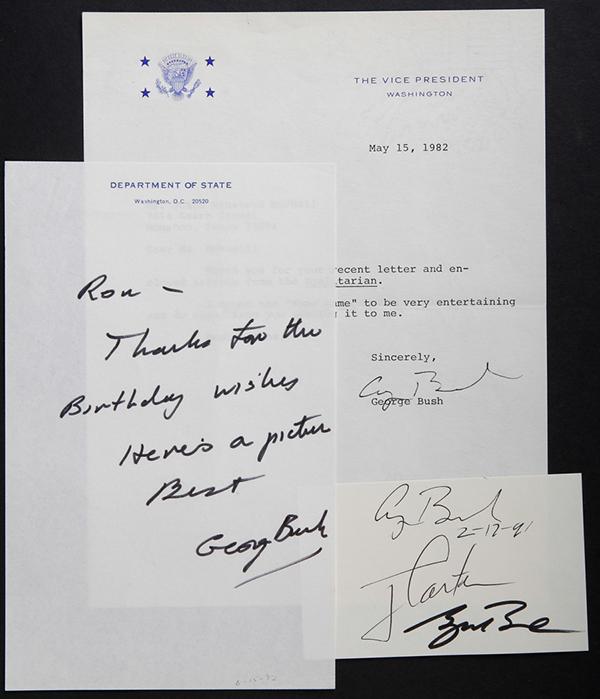 THE VICE PRESIDENT
WASHINGTON
May 15, 1982
recent letter and en-
tarian.
ame" to be very entertaining
it to me.
Sincerely,
George Bush
George Bush
DEPARTMENT OF STATE
Washington, D.C. 20520
Ron –
Thanks for the
Birthday wishes
Here's a picture
Best
George Bush
6-15-92
George Bush
2-17-91
J Carter
George Bush